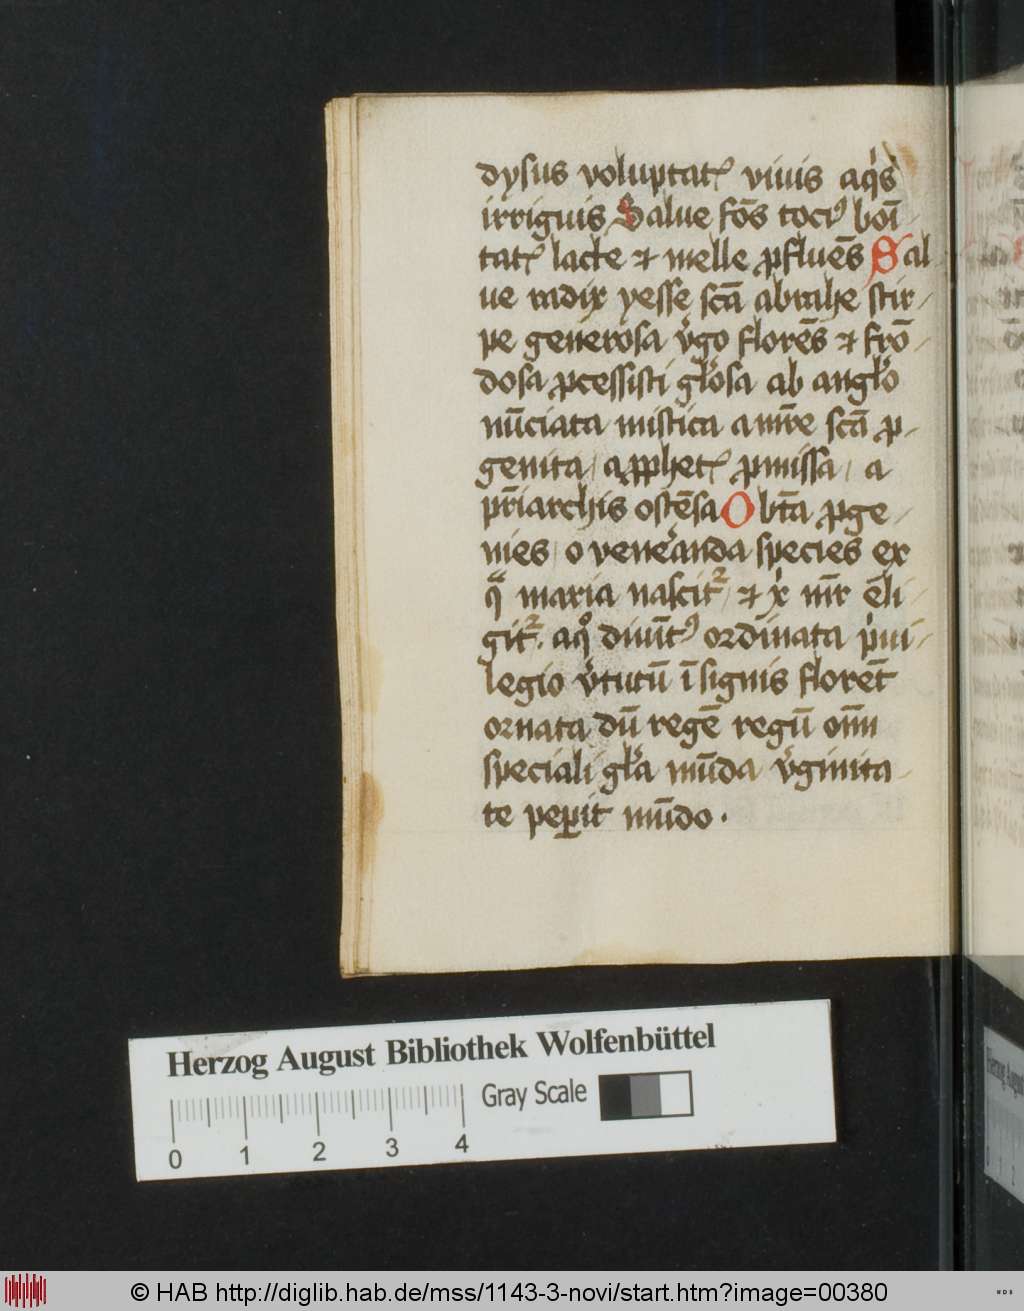 dysus voluptatꝭ viuis aqͥs
irriguis Salue fōs tociꝰ boī
tatꝭ lacte ⁊ melle ꝓfluēs Sal
ue radix yesse scā abrahe stir
pe generosa vͥgo florēs ⁊ frō
dosa ꝓcessisti glͦosa ab anglͦo
nūciata mistica a mr̄e scā ꝓ
genita, a ꝓphetꝭ ꝓmissa, a
pr̄iarchis ostēsa O btā ꝓge
nies, o veneͣanda species ex
qͣ maria nascitᷣ, ⁊ xͥ mr̄ eli
gitᷣ. a qͦ diuītꝰ ordinata pͥui
legio vͥtutū īsignis florēt
ornata dū regē regū om̄i
speciali glͥa mūda vͥginita
te peꝑit mūdo.
Herzog August Bibliothek Wolfenbüttel
Gray Scale
0 1 2 3 4
© HAB http://diglib.hab.de/mss/1143-3-novi/start.htm?image=00380